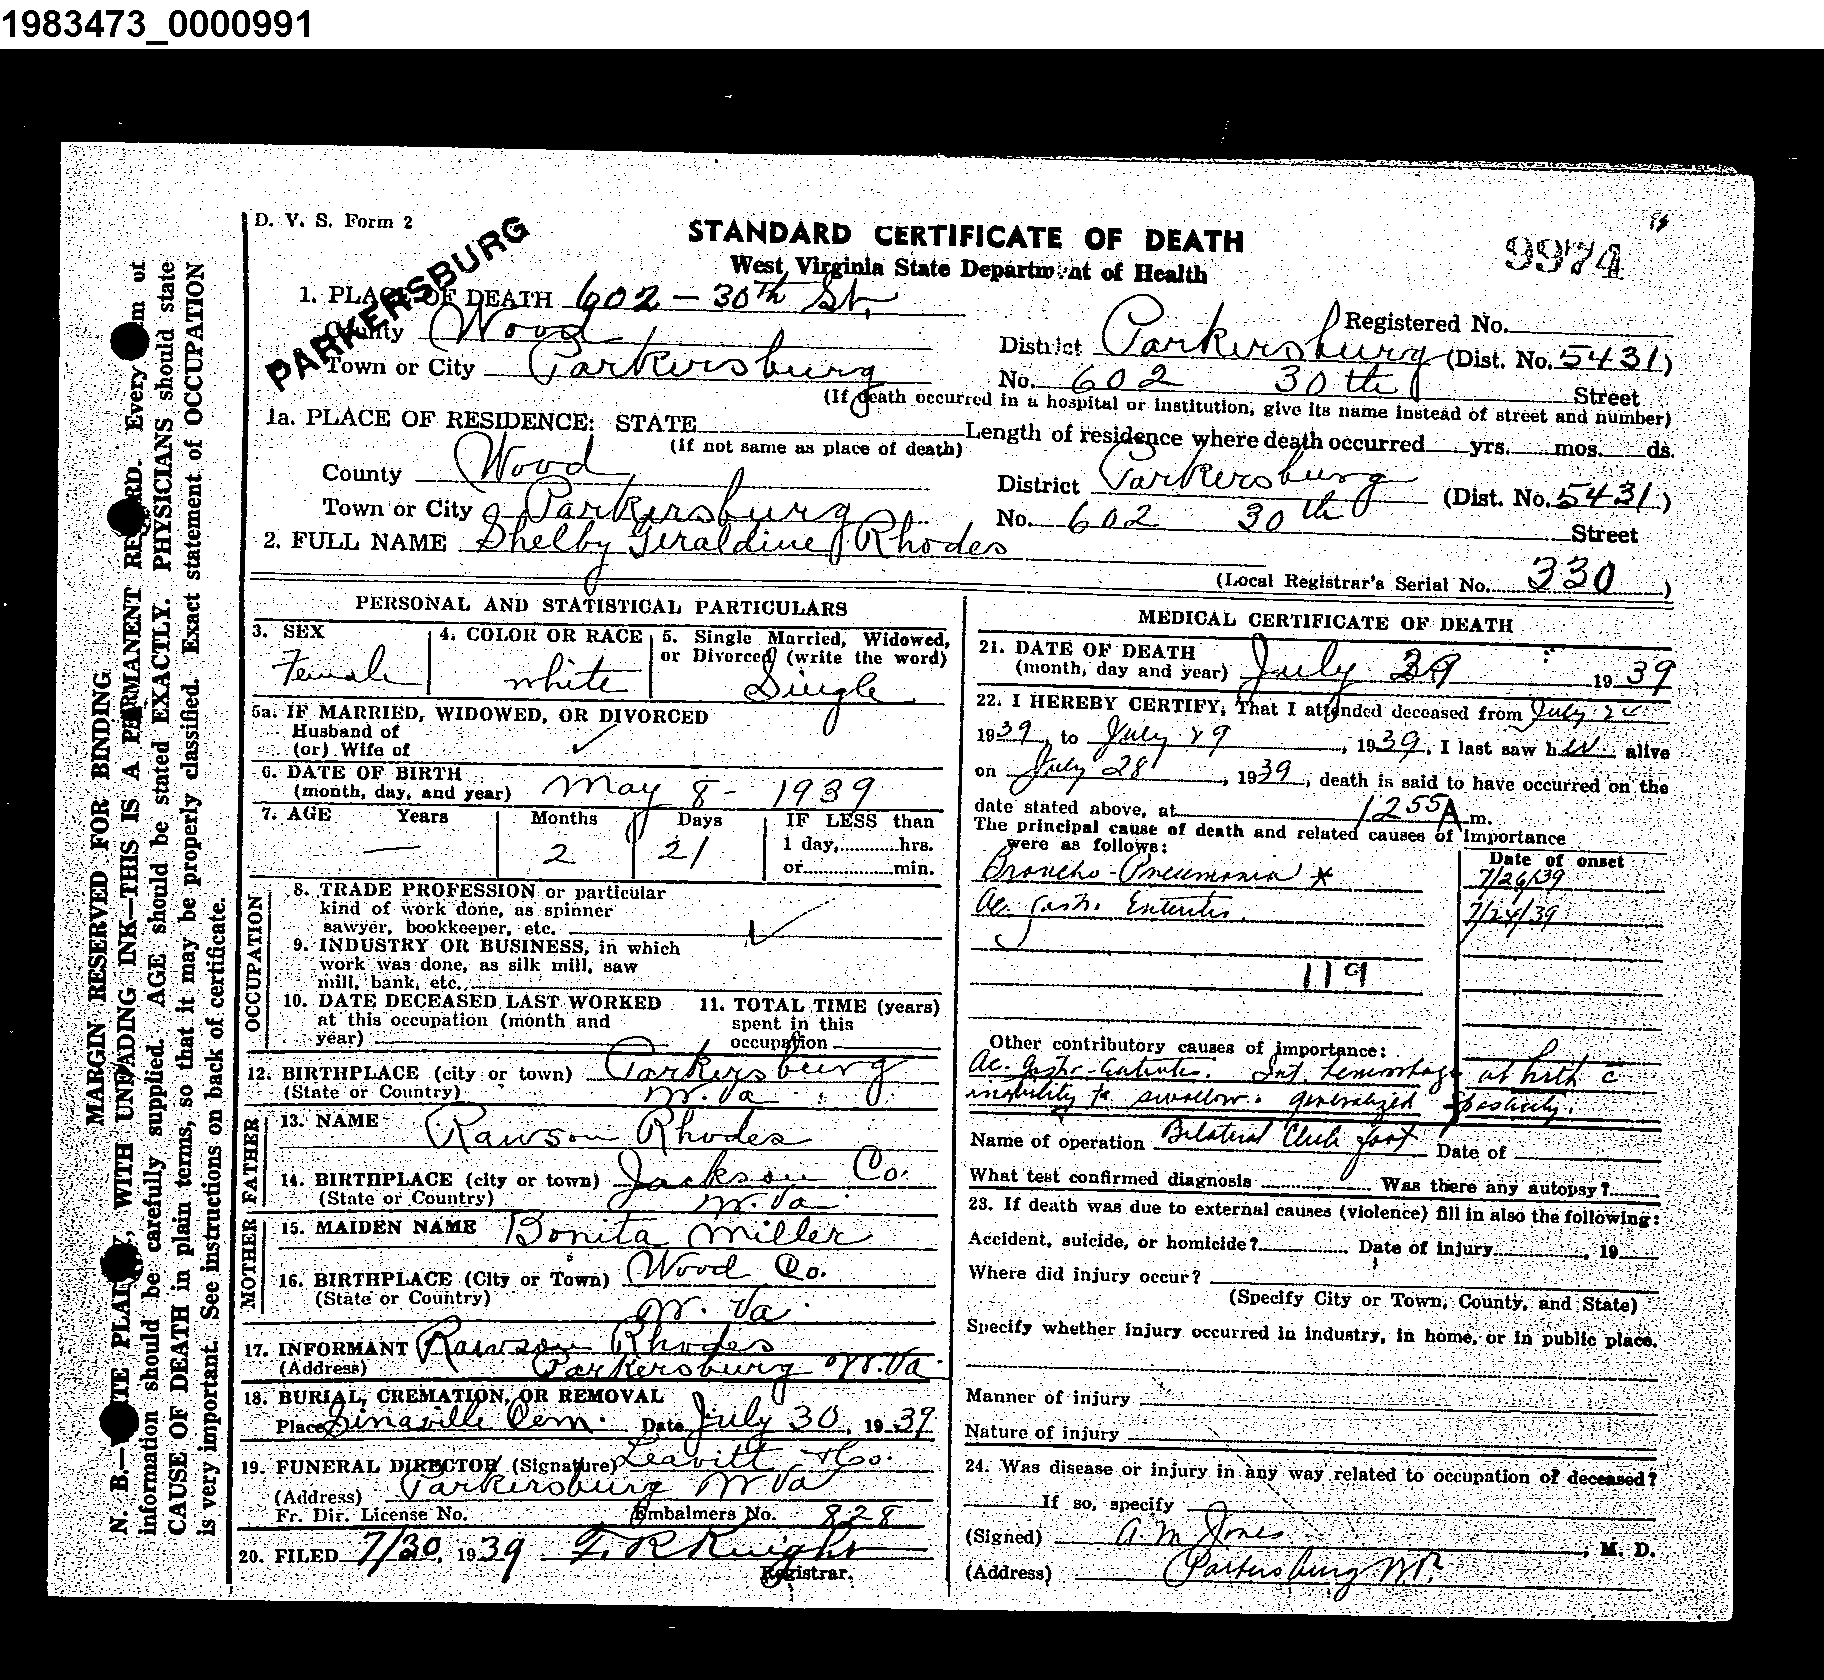 1983473_0000991
D. V. S. Form 2
PARKERSBURG
STANDARD CERTIFICATE OF DEATH
West Virginia State Department of Health
9974
1. PLACE OF DEATH 602 - 30th St.
County Wood
Registered No.
Town or City Parkersburg
District Parkersburg (Dist. No. 5431)
No. 602 30th Street
(If death occurred in a hospital or institution, give its name instead of street and number)
1a. PLACE OF RESIDENCE: STATE
(If not same as place of death)
Length of residence where death occurred yrs. mos. ds.
County Wood
District Parkersburg (Dist. No. 5431)
Town or City Parkersburg
No. 602 30th Street
2. FULL NAME Shelby Geraldine Rhodes
(Local Registrar's Serial No. 330)
PERSONAL AND STATISTICAL PARTICULARS
3. SEX Female
4. COLOR OR RACE white
5. Single Married, Widowed, or Divorced (write the word) Single
5a. IF MARRIED, WIDOWED, OR DIVORCED
Husband of
(or) Wife of
6. DATE OF BIRTH
(month, day, and year) May 8 - 1939
7. AGE Years Months Days IF LESS than
— 2 21 1 day, hrs.
or min.
OCCUPATION
8. TRADE PROFESSION or particular
kind of work done, as spinner
sawyer, bookkeeper, etc.
9. INDUSTRY OR BUSINESS, in which
work was done, as silk mill, saw
mill, bank, etc.
10. DATE DECEASED LAST WORKED
at this occupation (month and
year)
11. TOTAL TIME (years)
spent in this
occupation
12. BIRTHPLACE (city or town) Parkersburg
(State or Country) W. Va
FATHER
13. NAME Rawson Rhodes
14. BIRTHPLACE (city or town) Jackson Co.
(State or Country) W. Va
MOTHER
15. MAIDEN NAME Bonita Miller
16. BIRTHPLACE (City or Town) Wood Co.
(State or Country) W. Va.
17. INFORMANT Rawson Rhodes
(Address) Parkersburg W. Va.
18. BURIAL, CREMATION, OR REMOVAL
Place Cem. Date July 30, 1939
19. FUNERAL DIRECTOR (Signature) Leavitt & Co.
(Address) Parkersburg W Va
Fr. Dir. License No. Embalmers No. 828
20. FILED 7/30, 1939 Knight
Registrar.
MEDICAL CERTIFICATE OF DEATH
21. DATE OF DEATH
(month, day and year) July 29 1939
22. I HEREBY CERTIFY, That I attended deceased from July 24
1939, to July 29, 1939, I last saw her alive
on July 28, 1939, death is said to have occurred on the
date stated above, at 1255 A m.
The principal cause of death and related causes of importance
were as follows:
Date of onset
Broncho-Pneumonia * 7/26/39
Ac. Gastro Enteritis. 7/24/39
119
Other contributory causes of importance:
Ac. Gastro-Enteritis. Int. hemorrhage at birth c
inability to swallow. generalized spasticity.
Name of operation Bilateral Club foot Date of
What test confirmed diagnosis Was there any autopsy?
23. If death was due to external causes (violence) fill in also the following:
Accident, suicide, or homicide? Date of injury , 19
Where did injury occur?
(Specify City or Town, County, and State)
Specify whether injury occurred in industry, in home, or in public place.
Manner of injury
Nature of injury
24. Was disease or injury in any way related to occupation of deceased?
If so, specify
(Signed) A. M Jones, M. D.
(Address) Parkersburg
MARGIN RESERVED FOR BINDING
N. B.—WRITE PLAINLY, WITH UNFADING INK—THIS IS A PERMANENT RECORD. Every item of
information should be carefully supplied. AGE should be stated EXACTLY. PHYSICIANS should state
CAUSE OF DEATH in plain terms, so that it may be properly classified. Exact statement of OCCUPATION
is very important. See instructions on back of certificate.